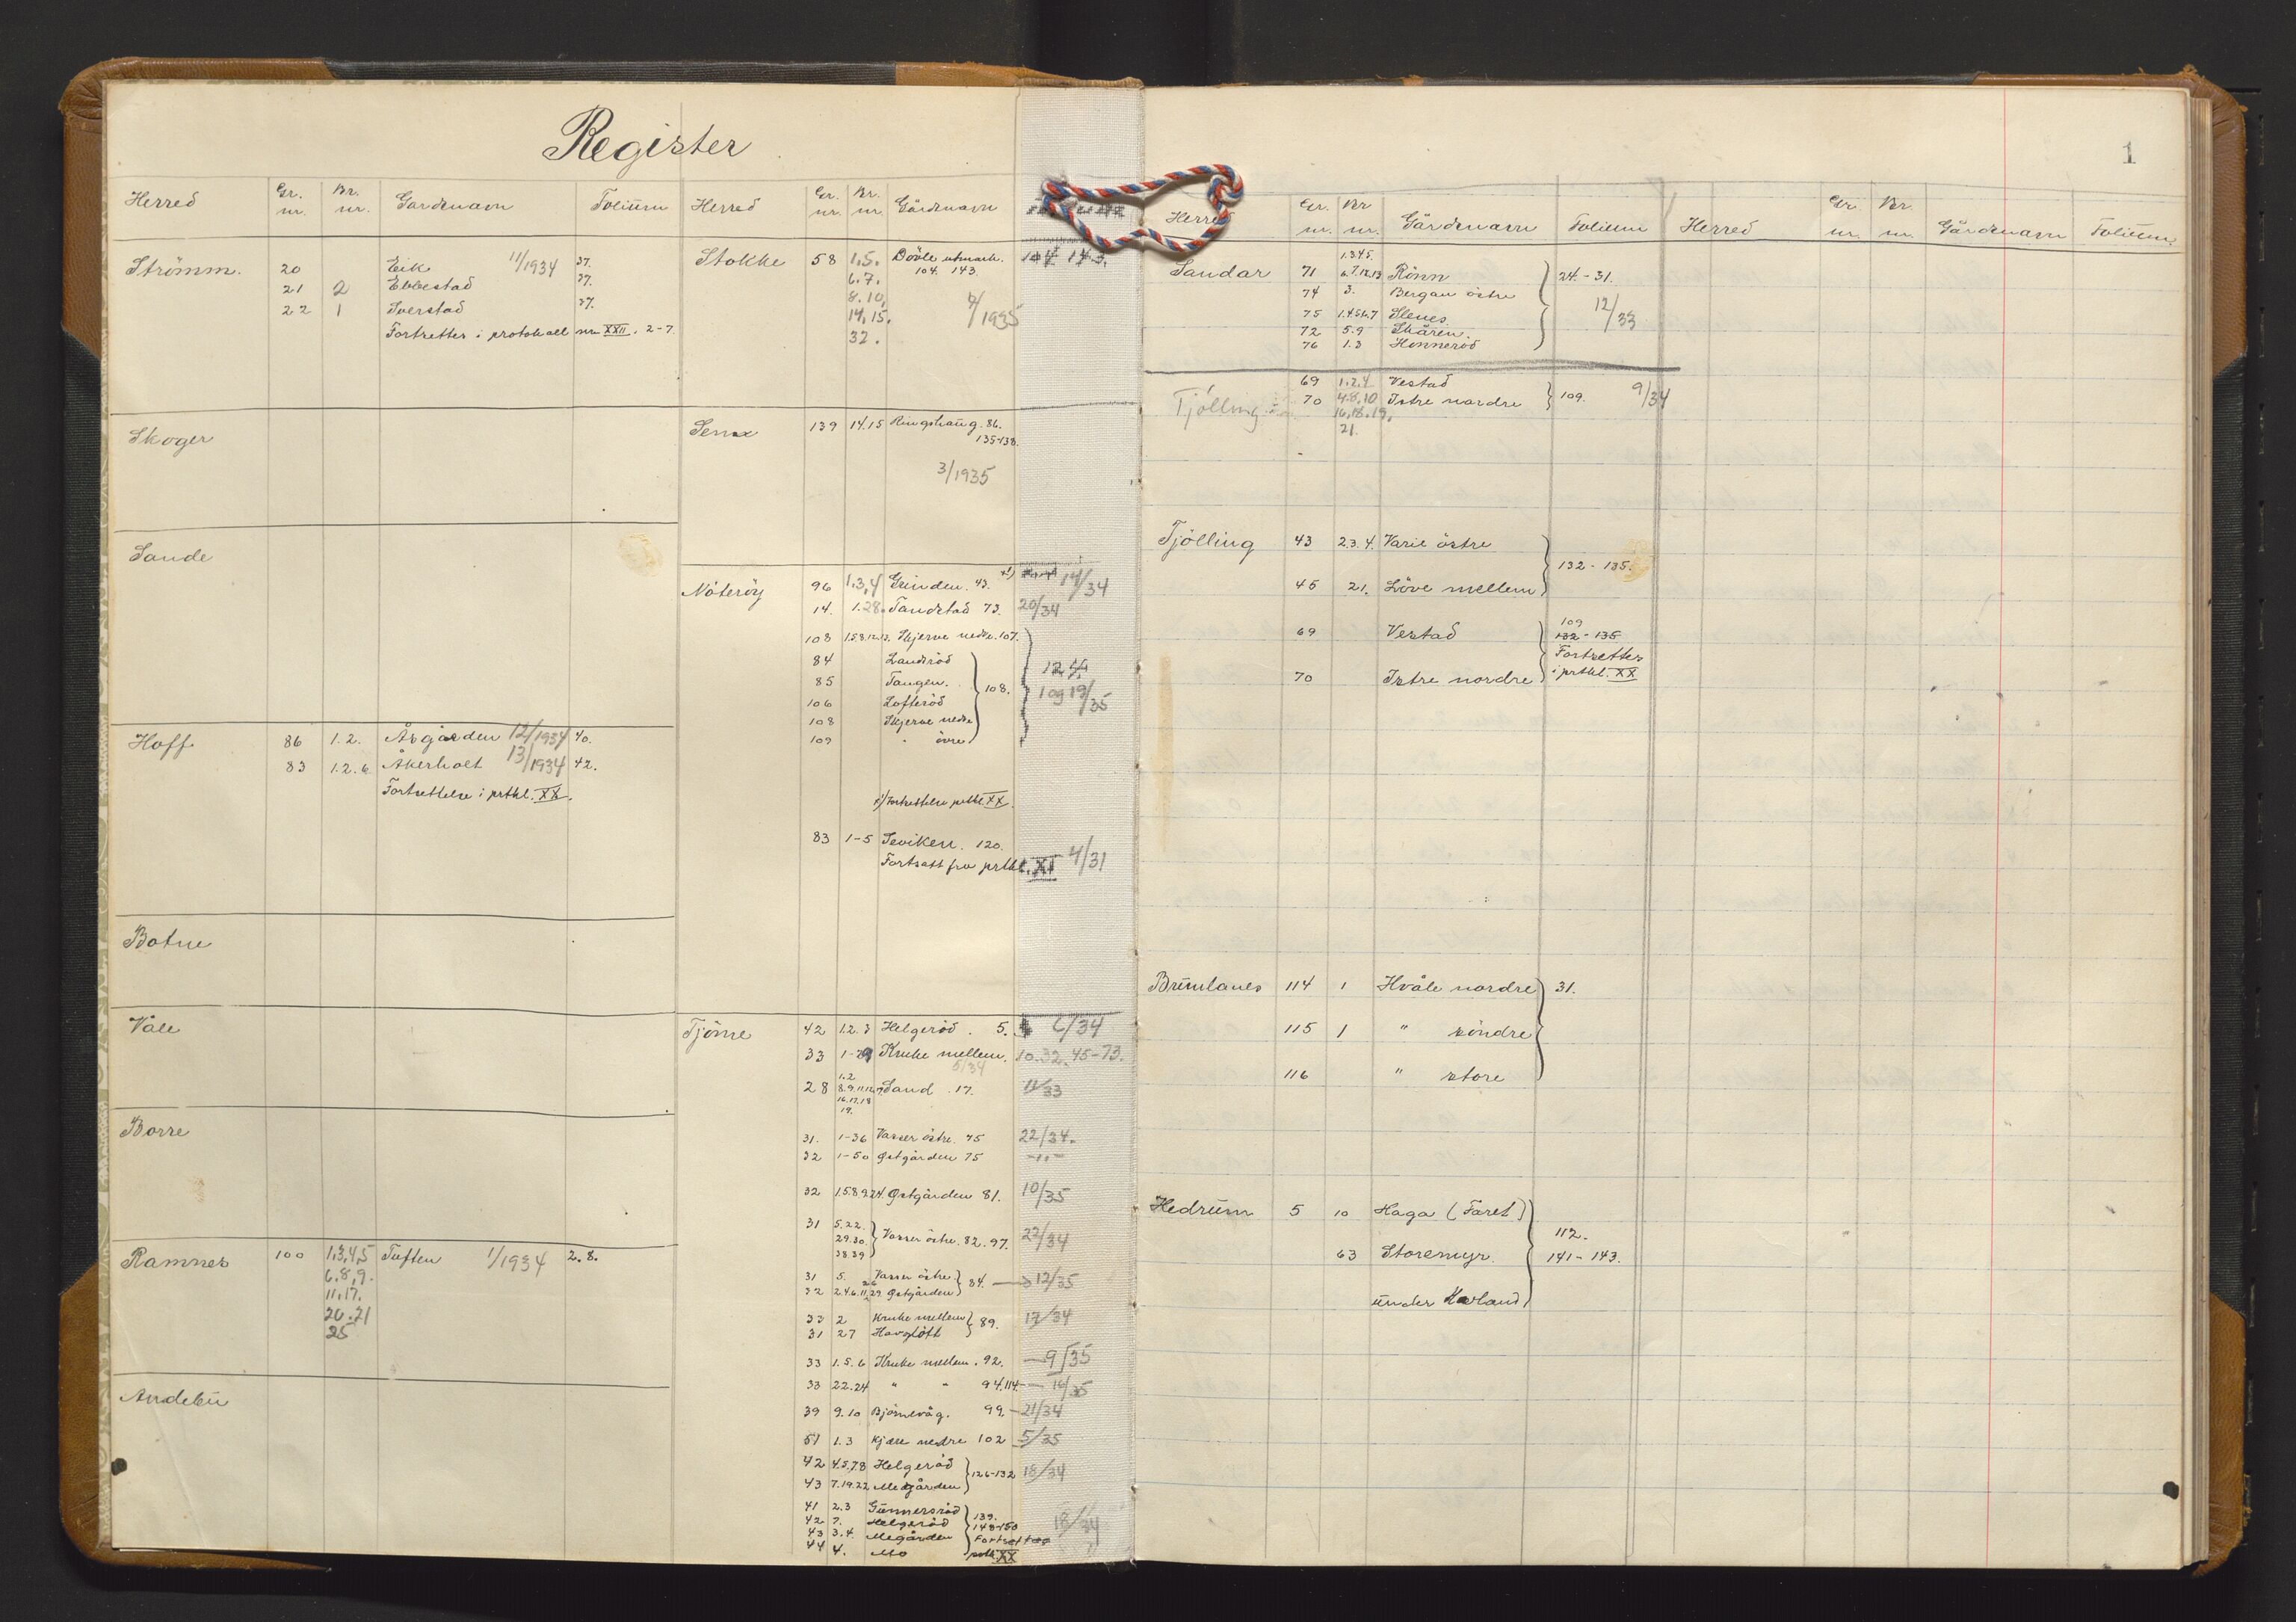 Register
Herred Gr. nr. Br. nr. Gårdsnavn Folium
Strömm. 20 Eik 11/1934 37.
21 2 Ebbestad 37.
22 1 Sverstad 37.
Fortsettes i protokoll nr. XXII. 2-7.
Skoger
Sande
Hoff 86 1.2. Årgården 12/1934 40.
83 1.2.6. Åkerholt 13/1934 42.
Fortsettelse i prtkl. XX.
Botne
Våle
Borre
Ramnes 100 1,3,4,5 Tuften 1/1934 2.8.
6.8,9.
11.17.
20.21
25
Andebu
Herred Gr. nr. Br. nr. Gårdsnavn
Stokke 58 1.5. Dövle utmark. 104. 143.
6.7. 104. 143.
8.10,
14,15. /1935
32.
Sem 139 14.15 Ringshaug. 86.
135-138.
3/1935
Nöteröy 96 1,3,4 Grinden. 43. x) 14/34
14. 1.28. Tandstad 73. 20/34
108 Skjerve nedre. 107.
84 Landsröd
85 Tangen. 108.
106 Lofteröd 1 og 19/35
108 Skjerve nedre
109 " övre
x) Fortsettelse prtkl XX.
83 1-5 Seviken. 120.
Fortsatt fra prtkl. XI 4/31
Tjöme 42 1.2.3 Helgeröd. 5. 6/34
33 Kruke mellem. 10.32.45-73.
5/34
1.2
28 8.9.11.12 Sand. 17. 11/33
16.17.18
19.
31. 1-36 Vasser östre. 75 22/34.
32 1-50 Østgården 75 -"-
32 1.5.8.9.24. Østgården 81. 10/35
31 5.22.
29.30. Vasser östre. 82. 97. 23/34
38.39
31 5. Vasser östre 84. 12/35
26
32 2.4.6.11.29. Østgården
33 2 Kruke mellem 89. 17/34
31 27 Havgløtt
33 1.5.6 Kruke mellem. 92. - 9/35
33 22.24 " " 94.114. - 16/35
39 9.10 Björnevåg. 99. - 21/34
51 1.3 Kjære nedre 102 5/35
42 4.5.7.8 Helgeröd 126-132 18/34
43 7.19.22 Megården
41 2.3 Gunnersröd 139.
42 7. Helgeröd 148-150 18/34
43 3.4. Megården Fortsettes
44 4. Mo prtk XX
1
Herred Gr. nr. Br. nr. Gårdsnavn Folium Herred Gr. nr. Br. nr. Gårdsnavn Folium.
1.3.4.5.
Sandar 71 6.7.12.13 Rönn 24.-31.
74 3. Bergan östre
75 1.4.5.6.7 Slenes 12/33
72 5.9 Skåren.
76 1.3 Honneröd
69 1.2.4 Vestad
Tjölling 70 4.8.10 Istre nordre 109. 9/34
16.18.19.
21.
Tjölling 43 2.3.4. Varil östre
132-135.
45 21. Löve mellem
109
69 Vestad 132-135
Fortsettes
70 Istre nordre i prtkl. XX
Brunlanes 114 1 Hvåle nordre 31.
115 1 " söndre
116 " store
Hedrum 5 10 Haga (Faret)
112.
63 Storemyr. 141-143.
under Havland